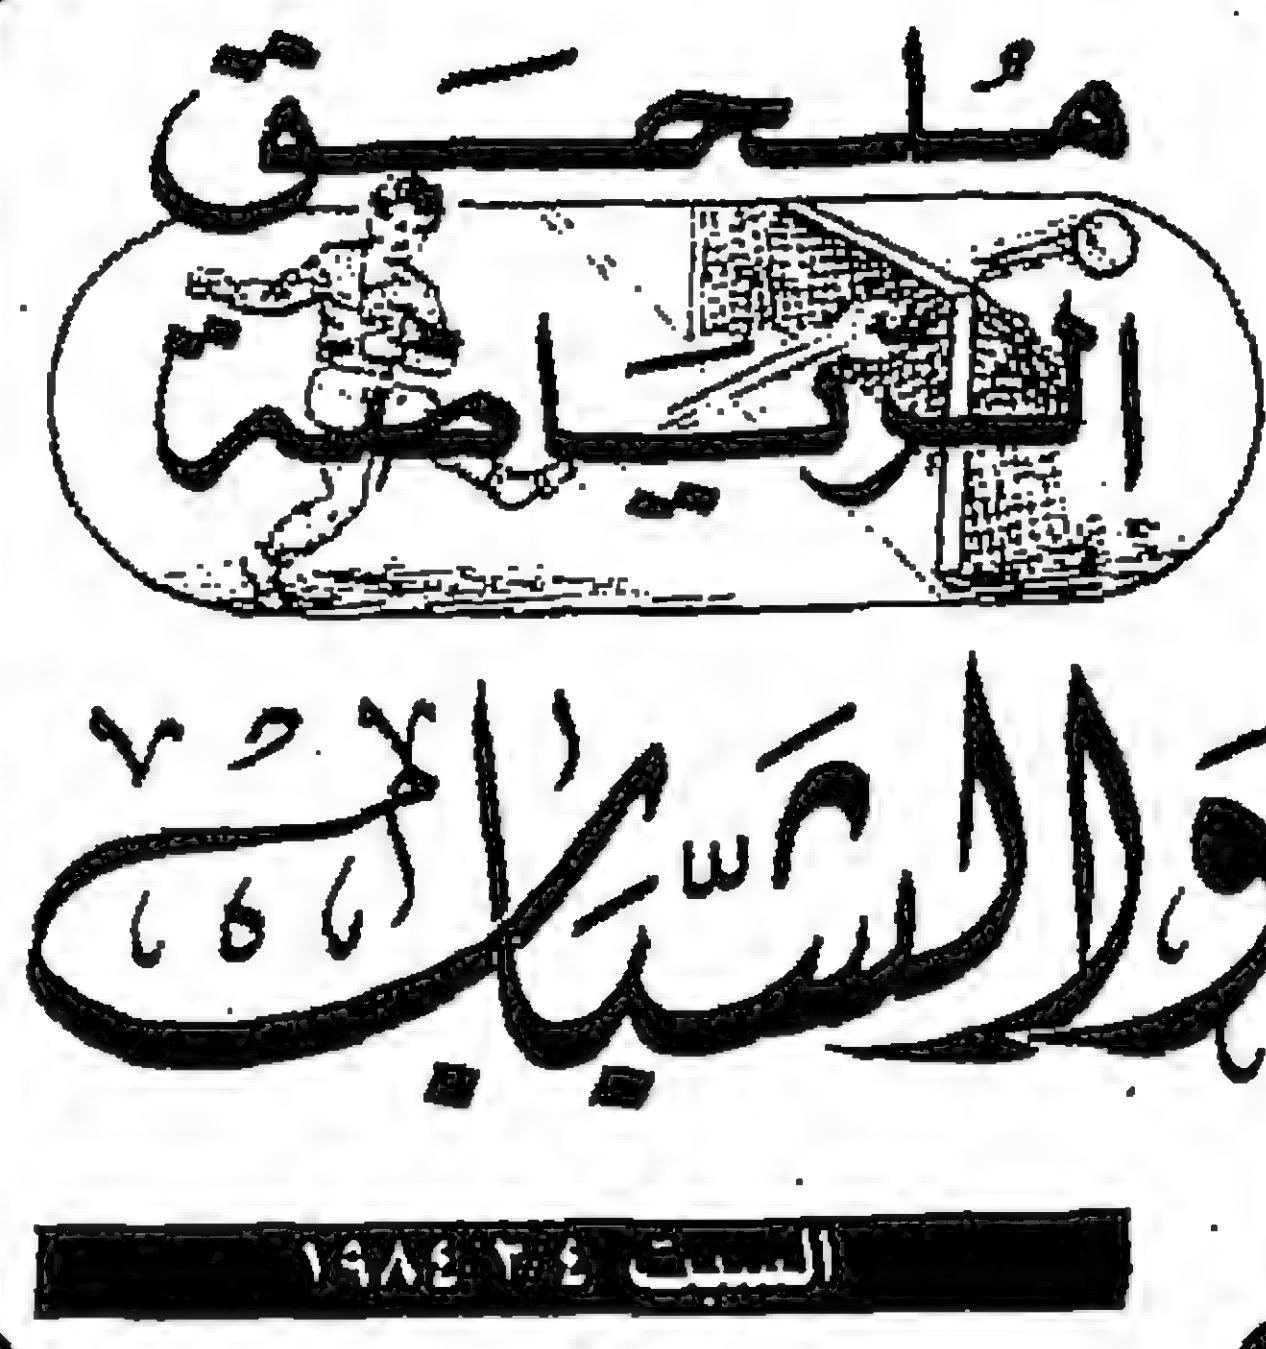 مُلحَق
الريَاضة
وَالشَّبَاب
السبت ٤ ٢ ١٩٨٤